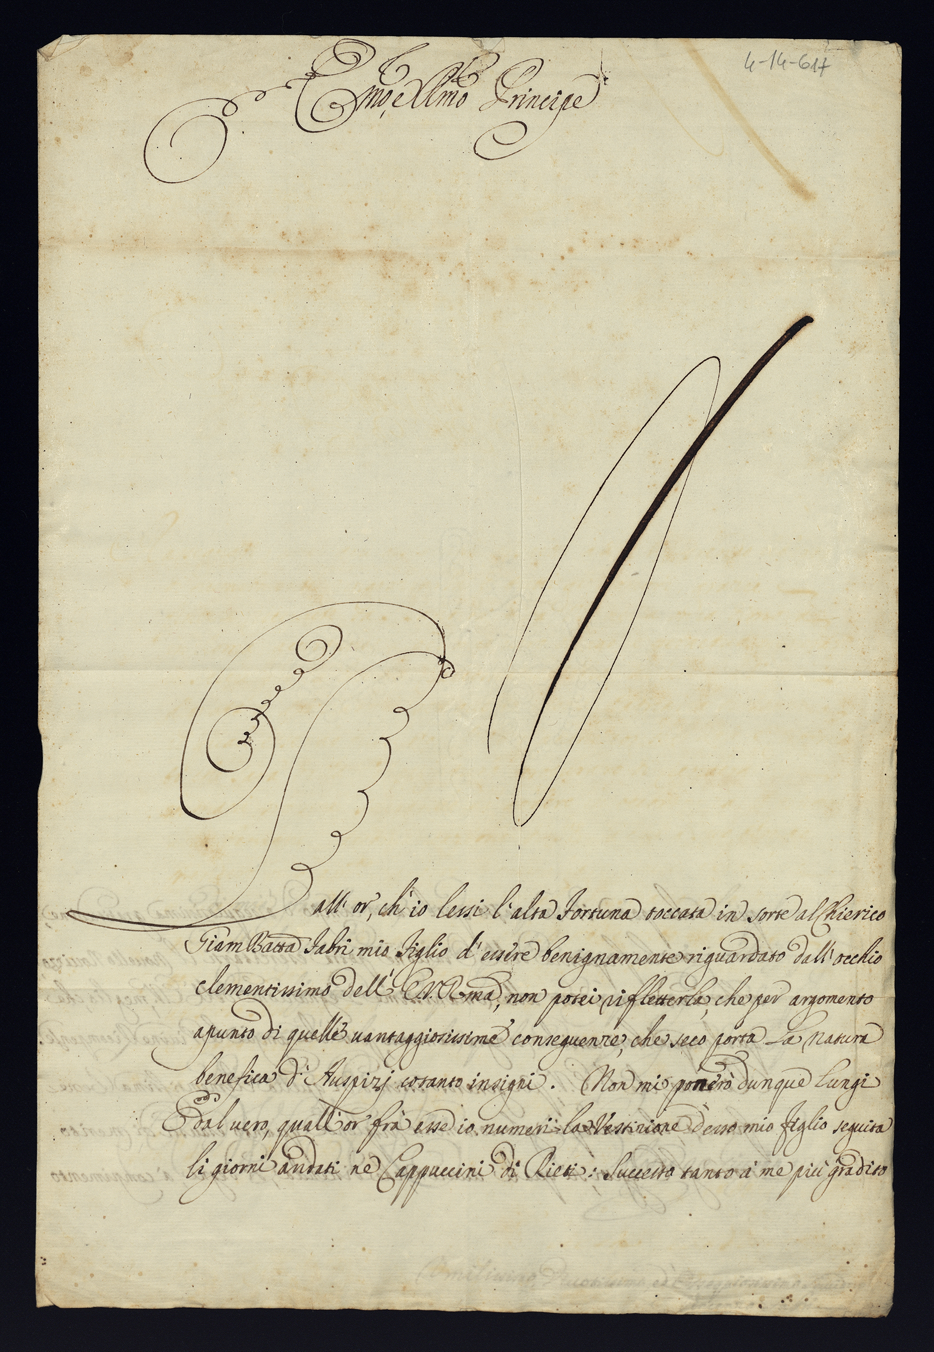 4-14-617
Emo, e Rmo Principe
Dall' or, ch' io lessi l'alta Fortuna toccata in sorte al Chierico
Giam Batta Fabri mio Figlio d' essere benignamente riguardato dall' occhio
clementissimo dell' E.V. Rma, non potei rifletterla, che per argomento
apunto di quelle vantaggiosissime conseguenze, che seco porta La natura
benefica d' Auspizj cotanto insigni. Non mi ponerò dunque lungi
dal vero, quall' or frà esse io numeri la Vestizione desso mio Figlio seguita
li giorni andati nè Cappuccini di Rieti: Successo tanto à me più gradito